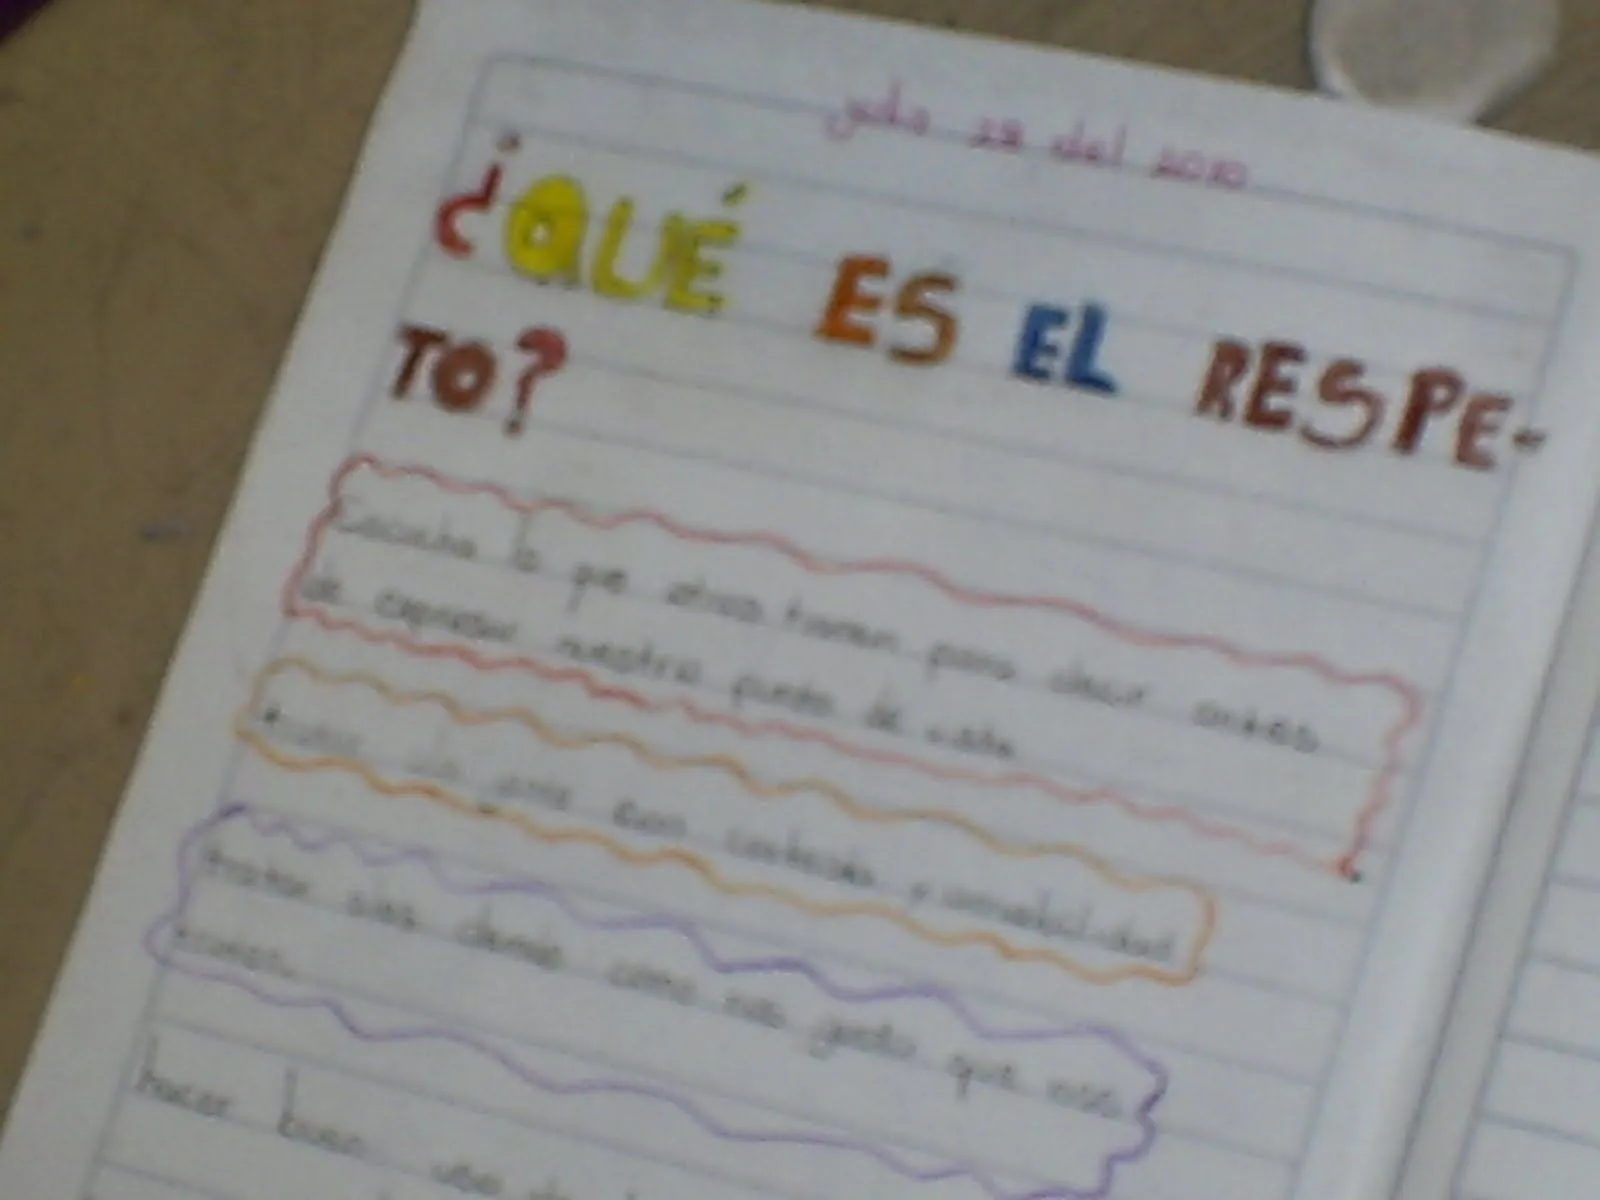 julio 28 del 2010
¿QUÉ ES EL RESPE-
TO?
Escucha lo que otros tienen para decir antes
de expresar nuestro punto de vista
con cortesía y amabilidad
tratar a los demás como nos gusta que nos
traten.
hacer buen uso de